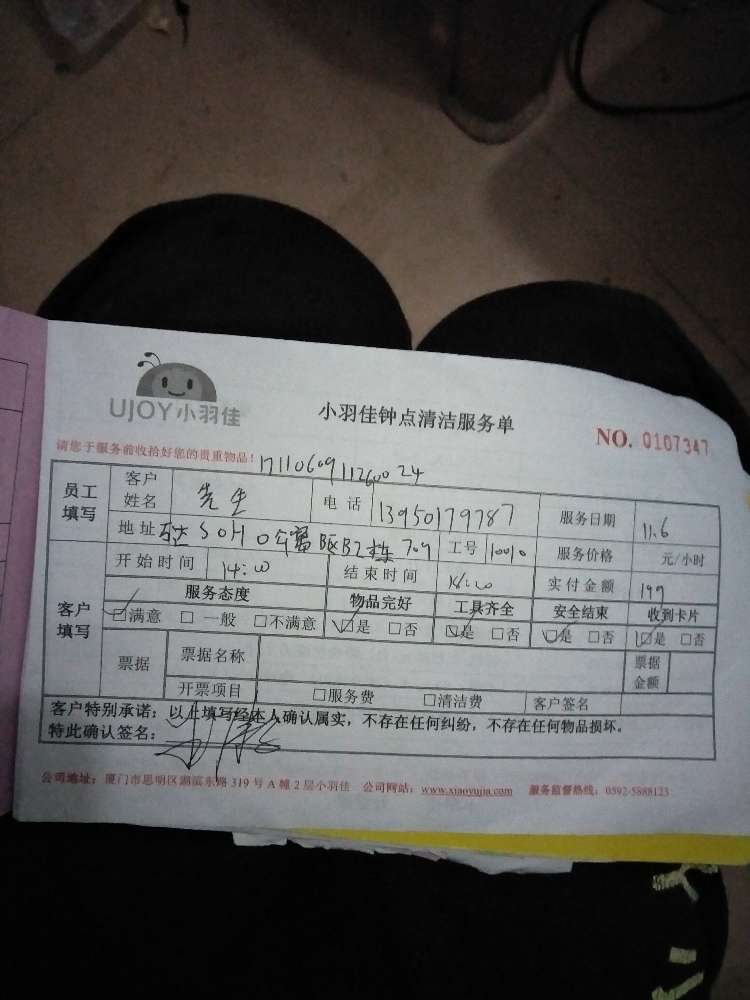 UJOY小羽佳
小羽佳钟点清洁服务单
NO. 0107347
请您于服务前收拾好您的贵重物品！
17110609112600 24
员工填写 客户姓名 先生 电话 13950179787 服务日期 11.6
地址 SOHO B2栋 709 工号 10010 服务价格 元/小时
开始时间 14:00 结束时间 16:00 实付金额 199
客户填写 服务态度 物品完好 工具齐全 安全结束 收到卡片
☑满意 □一般 □不满意 ☑是 □否 ☑是 □否 ☑是 □否 ☑是 □否
票据 票据名称 票据金额
开票项目 □服务费 □清洁费 客户签名
客户特别承诺：以上填写经本人确认属实，不存在任何纠纷，不存在任何物品损坏。
特此确认签名：
公司地址：厦门市思明区湖滨东路 319 号 A 幢 2 层小羽佳 公司网站：www.xiaoyujia.com 服务监督热线：0592-5888123